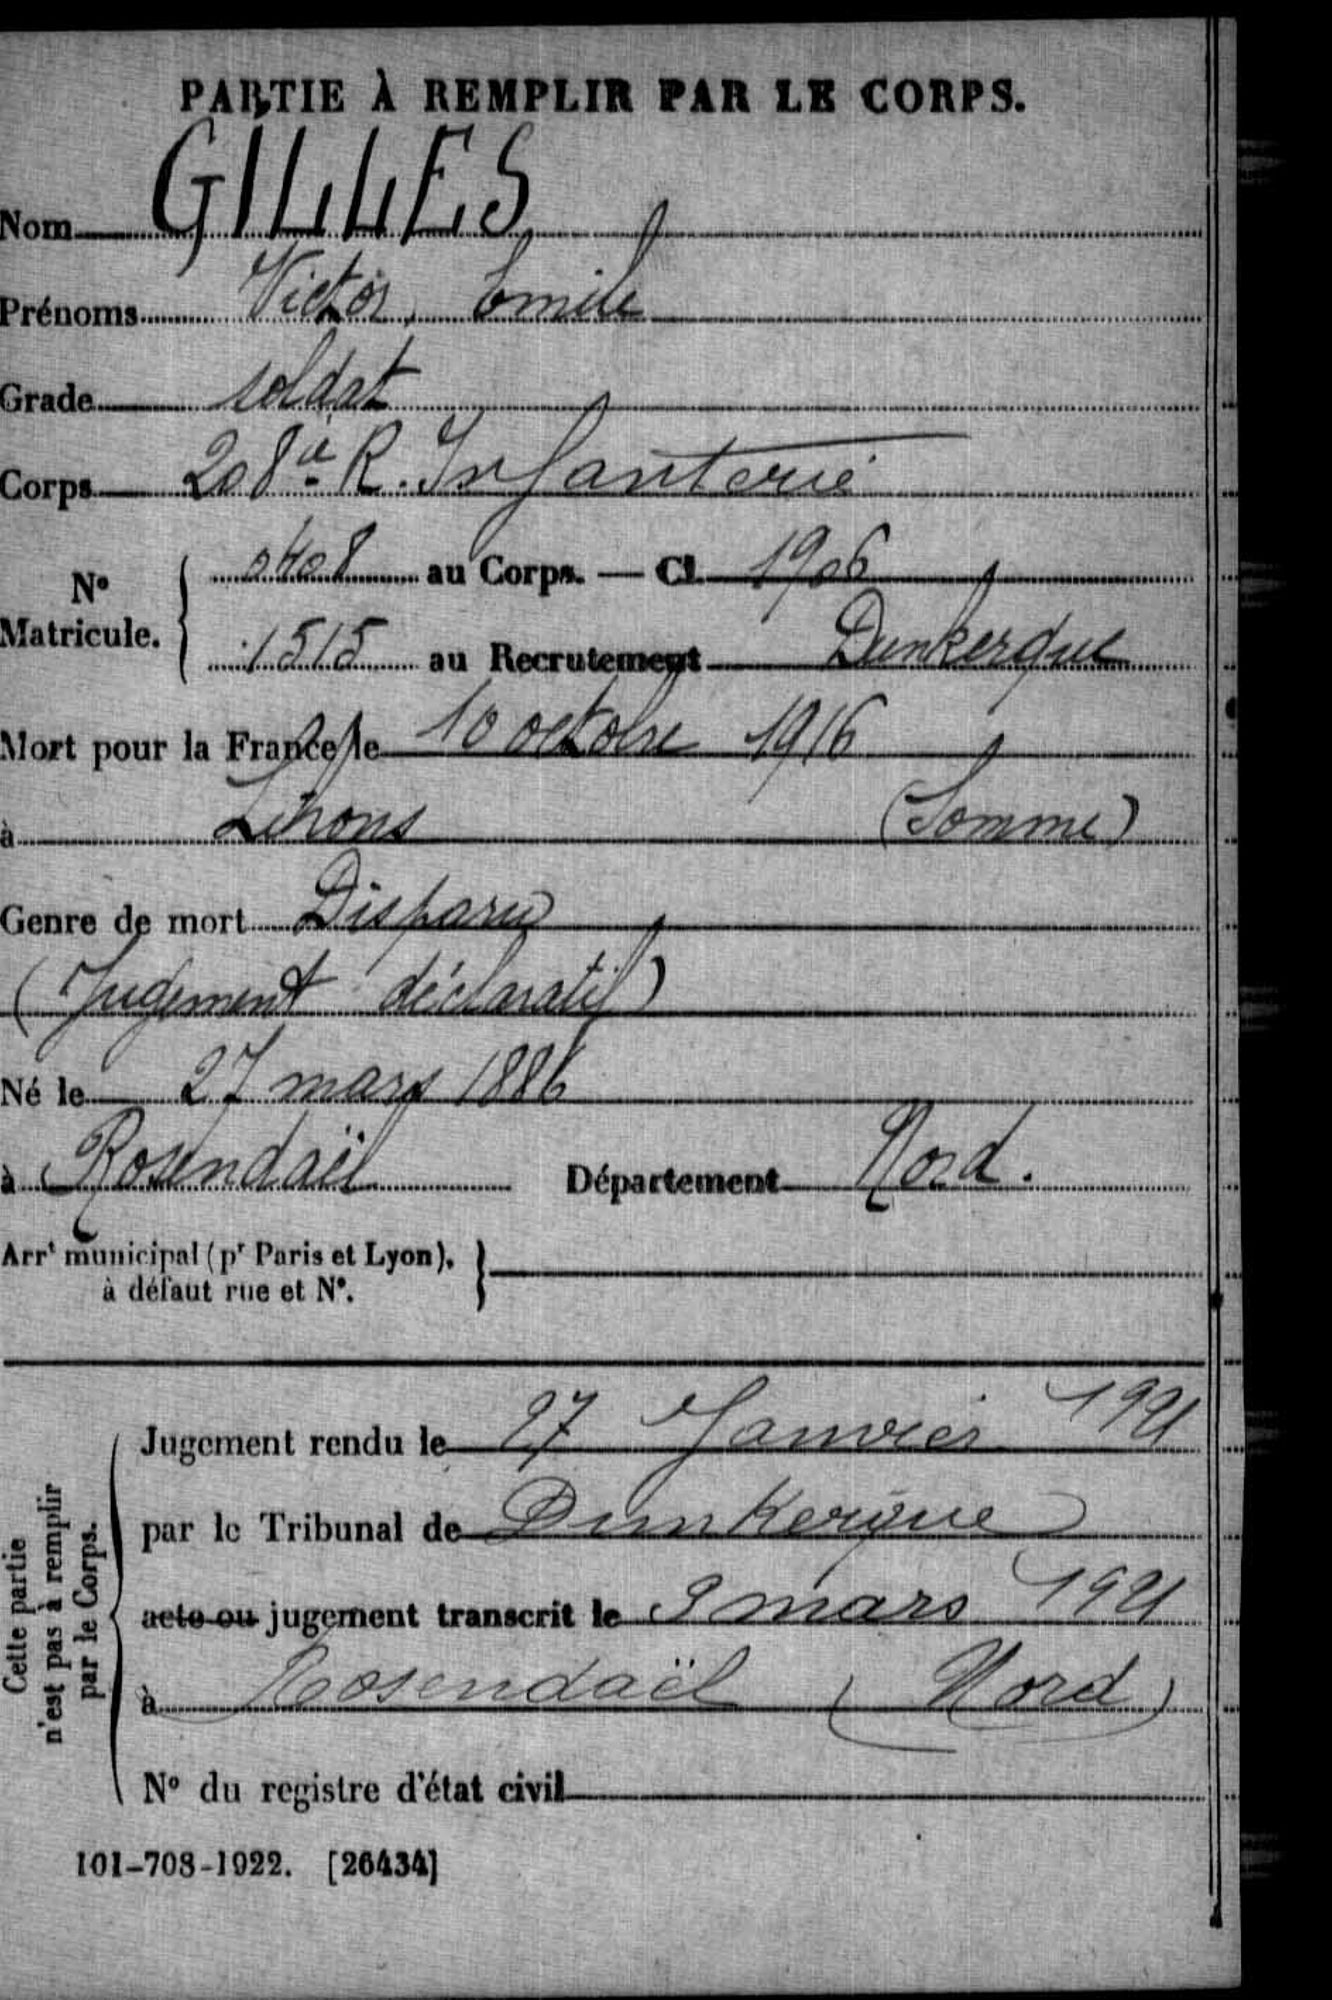 PARTIE À REMPLIR PAR LE CORPS.
Nom GILLES
Prénoms Victor, Emile
Grade soldat
Corps 208è R. Infanterie
N° Matricule. { 0408 au Corps. — Cl. 1906
1515 au Recrutement Dunkerque
Mort pour la France le 10 octobre 1916
à Lihons (Somme)
Genre de mort Disparu
(Jugement déclaratif)
Né le 27 mars 1886
à Rosendaël Département Nord.
Arrt municipal (pr Paris et Lyon), à défaut rue et N°. }
Cette partie n'est pas à remplir par le Corps.
Jugement rendu le 27 Janvier 1921
par le Tribunal de Dunkerque
acte ou jugement transcrit le 9 mars 1921
à Rosendaël (Nord)
N° du registre d'état civil
101-708-1922. [26434]